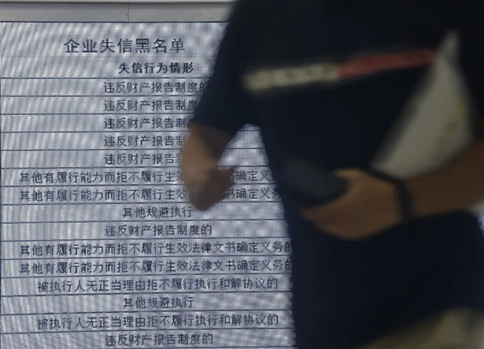 企业失信黑名单
失信行为情形
违反财产报告制度的
违反财产报告制度
违反财产报告制度
违反财产报告制
违反财产报告
其他有履行能力而拒不履行生效 确定义务
其他有履行能力而拒不履行生效 确定义务
其他规避执行
违反财产报告制度的
其他有履行能力而拒不履行生效法律文书确定义务的
其他有履行能力而拒不履行生效法律文书确定义务的
被执行人无正当理由拒不履行执行和解协议的
其他规避执行
被执行人无正当理由拒不履行执行和解协议的
违反财产报告制度的